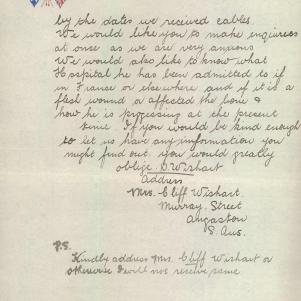 by the dates we received cables.
We would like you to make enquires
at once as we are very anxious
We would also like to know what
Hospital he has been admitted to if
in France or elsewhere and if it is a
flesh wound or affected the bone &
how he is progressing at the present
time. If you would be kind enough
to let us have any information you
might find out. you would greatly
oblige. D. Wishart
Address
Mrs. Cliff Wishart.
Murray. Street
Angaston
S. Aus.
P.S.
Kindly address Mrs. Cliff Wishart or
otherwise I will not receive same